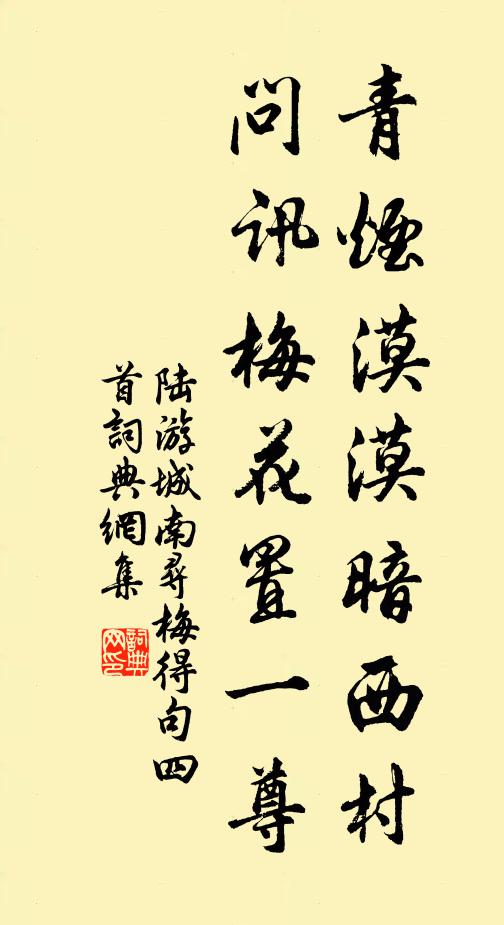 青煙漠漠暗西村
問訊梅花置一尊
陆游城南尋梅得句四
首詞典網集
詞典
网印